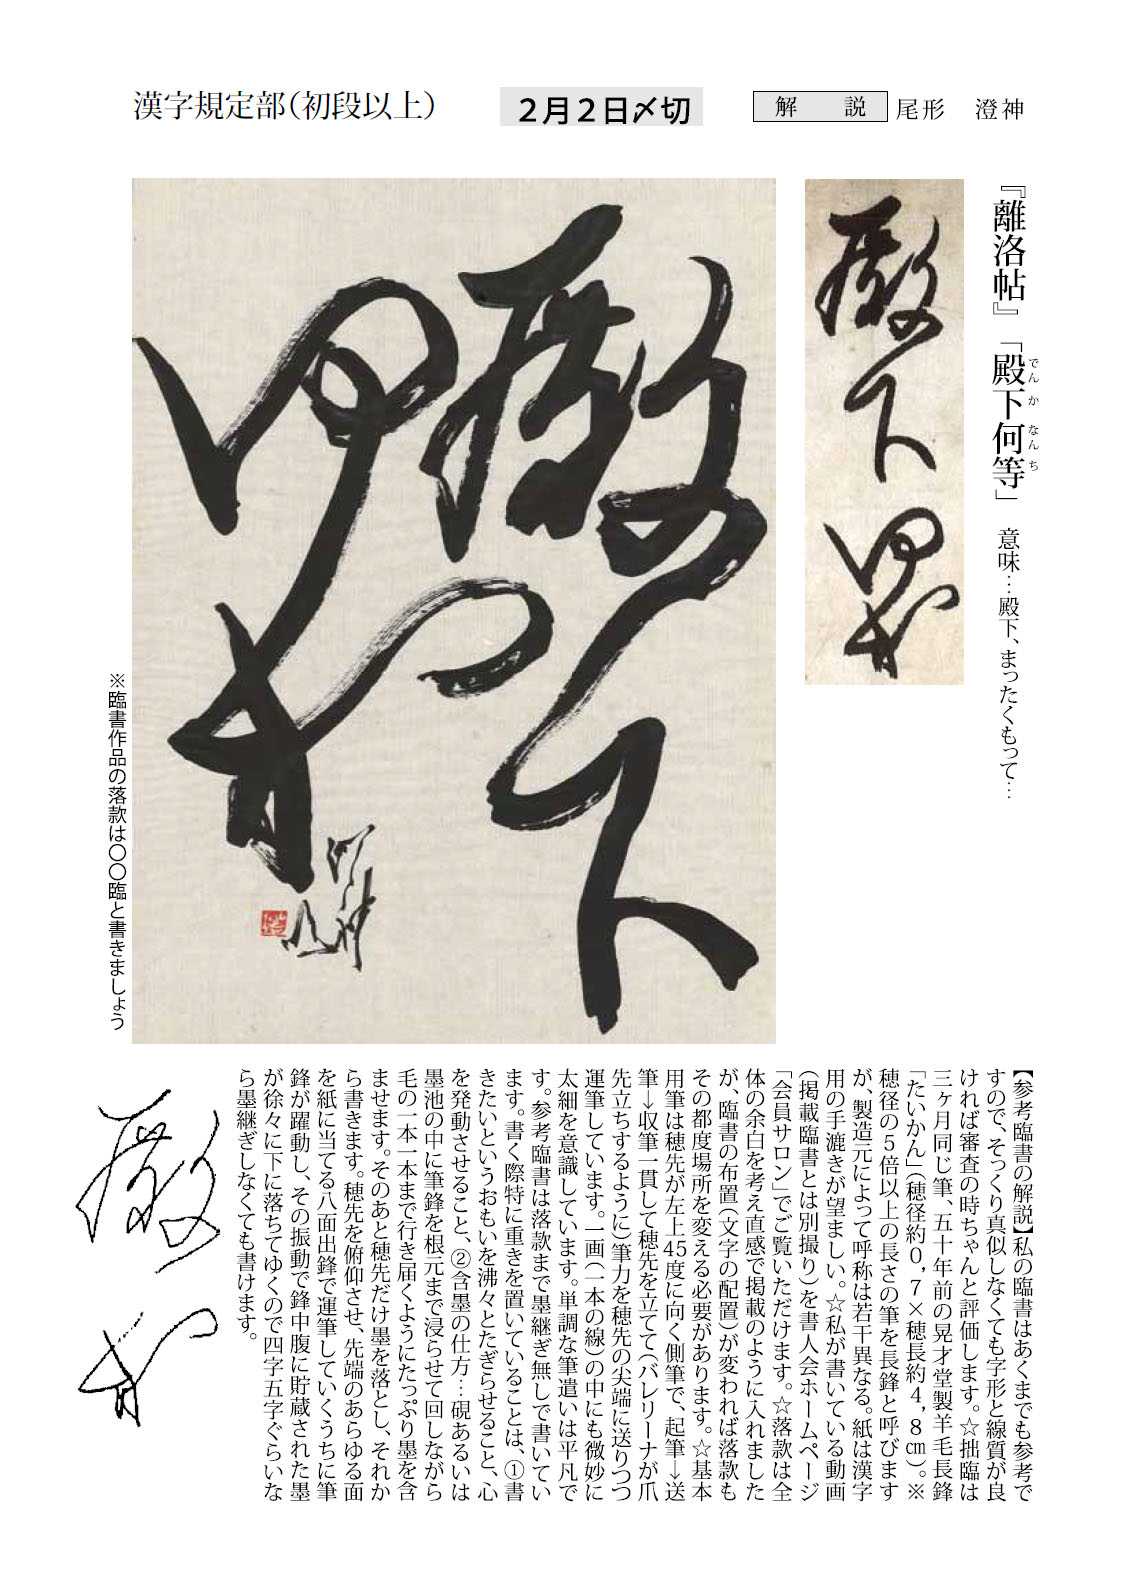 漢字規定部（初段以上）
２月２日〆切
解　説
尾形　澄神
『離洛帖』「殿下何等」　意味…殿下、まったくもって…
でんか　なんち
殿下何等
殿下何等
※臨書作品の落款は〇〇臨と書きましょう
【参考臨書の解説】私の臨書はあくまでも参考で
すので、そっくり真似しなくても字形と線質が良
ければ審査の時ちゃんと評価します。☆拙臨は
三ヶ月同じ筆、五十年前の晃才堂製羊毛長鋒
「たいかん」（穂径約０,７×穂長約４,８㎝）。※
穂径の５倍以上の長さの筆を長鋒と呼びます
が、製造元によって呼称は若干異なる。紙は漢字
用の手漉きが望ましい。☆私が書いている動画
（掲載臨書とは別撮り）を書人会ホームページ
「会員サロン」でご覧いただけます。☆落款は全
体の余白を考え直感で掲載のように入れました
が、臨書の布置（文字の配置）が変われば落款も
その都度場所を変える必要があります。☆基本
用筆は穂先が左上45度に向く側筆で、起筆→送
筆→収筆一貫して穂先を立てて（バレリーナが爪
先立ちするように）筆力を穂先の尖端に送りつつ
運筆しています。一画（一本の線）の中にも微妙に
太細を意識しています。単調な筆遣いは平凡で
す。参考臨書は落款まで墨継ぎ無しで書いてい
ます。書く際特に重きを置いていることは、①書
きたいというおもいを沸々とたぎらせること、心
を発動させること、②含墨の仕方…硯あるいは
墨池の中に筆鋒を根元まで浸らせて回しながら
毛の一本一本まで行き届くようにたっぷり墨を含
ませます。そのあと穂先だけ墨を落とし、それか
ら書きます。穂先を俯仰させ、先端のあらゆる面
を紙に当てる八面出鋒で運筆していくうちに筆
鋒が躍動し、その振動で鋒中腹に貯蔵された墨
が徐々に下に落ちてゆくので四字五字ぐらいな
ら墨継ぎしなくても書けます。
殿
等